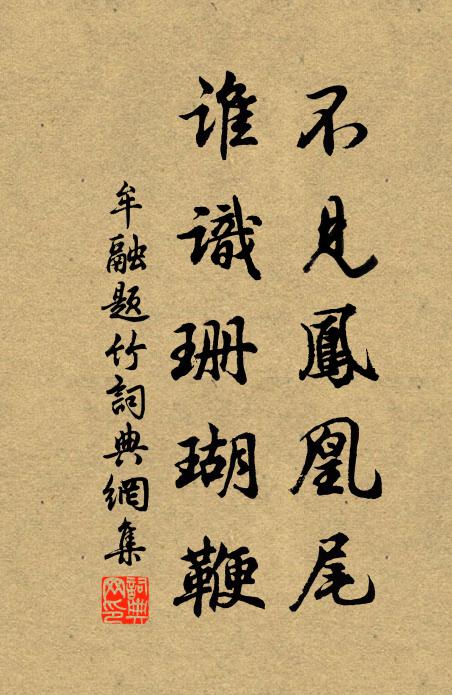 不見鳳凰尾
誰識珊瑚鞭
牟融題竹詞典網集
詞典网印